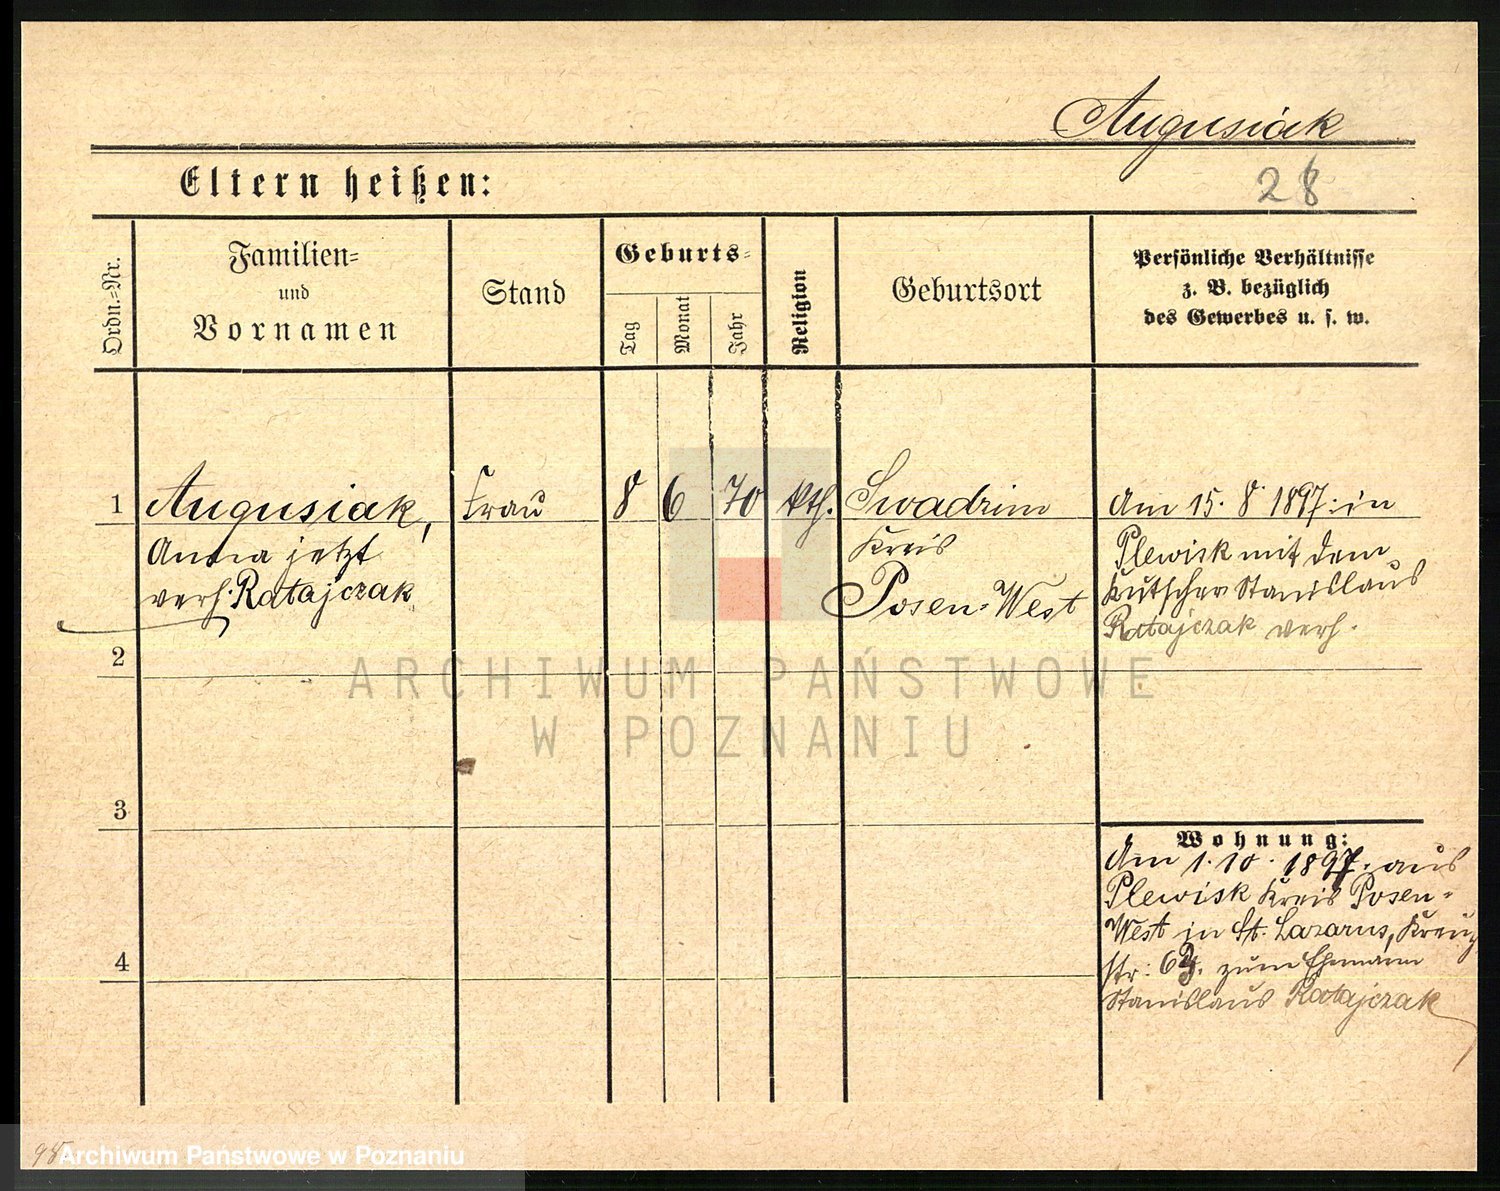 Augusiak
Eltern heißen:
28
Ordn.=Nr.
Familien=
und
Vornamen
Stand
Geburts=
Tag
Monat
Jahr
Religion
Geburtsort
Persönliche Verhältnisse
z. B. bezüglich
des Gewerbes u. s. w.
1
Augusiak,
Anna jetzt
verh. Ratajczak
Frau
8
6
70
kth.
Swadzim
Kreis
Posen=West
Am 15. 8. 1897. in
Plewisk mit dem
Kutscher Stanislaus
Ratajczak verh.
2
ARCHIWUM PAŃSTWOWE
W POZNANIU
3
Wohnung:
Am 1. 10. 1897. aus
Plewisk Kreis Posen=
West in St. Lazarus, Kreuz
str: zum Ehemann
Stanislaus Ratajczak
4
Archiwum Państwowe w Poznaniu